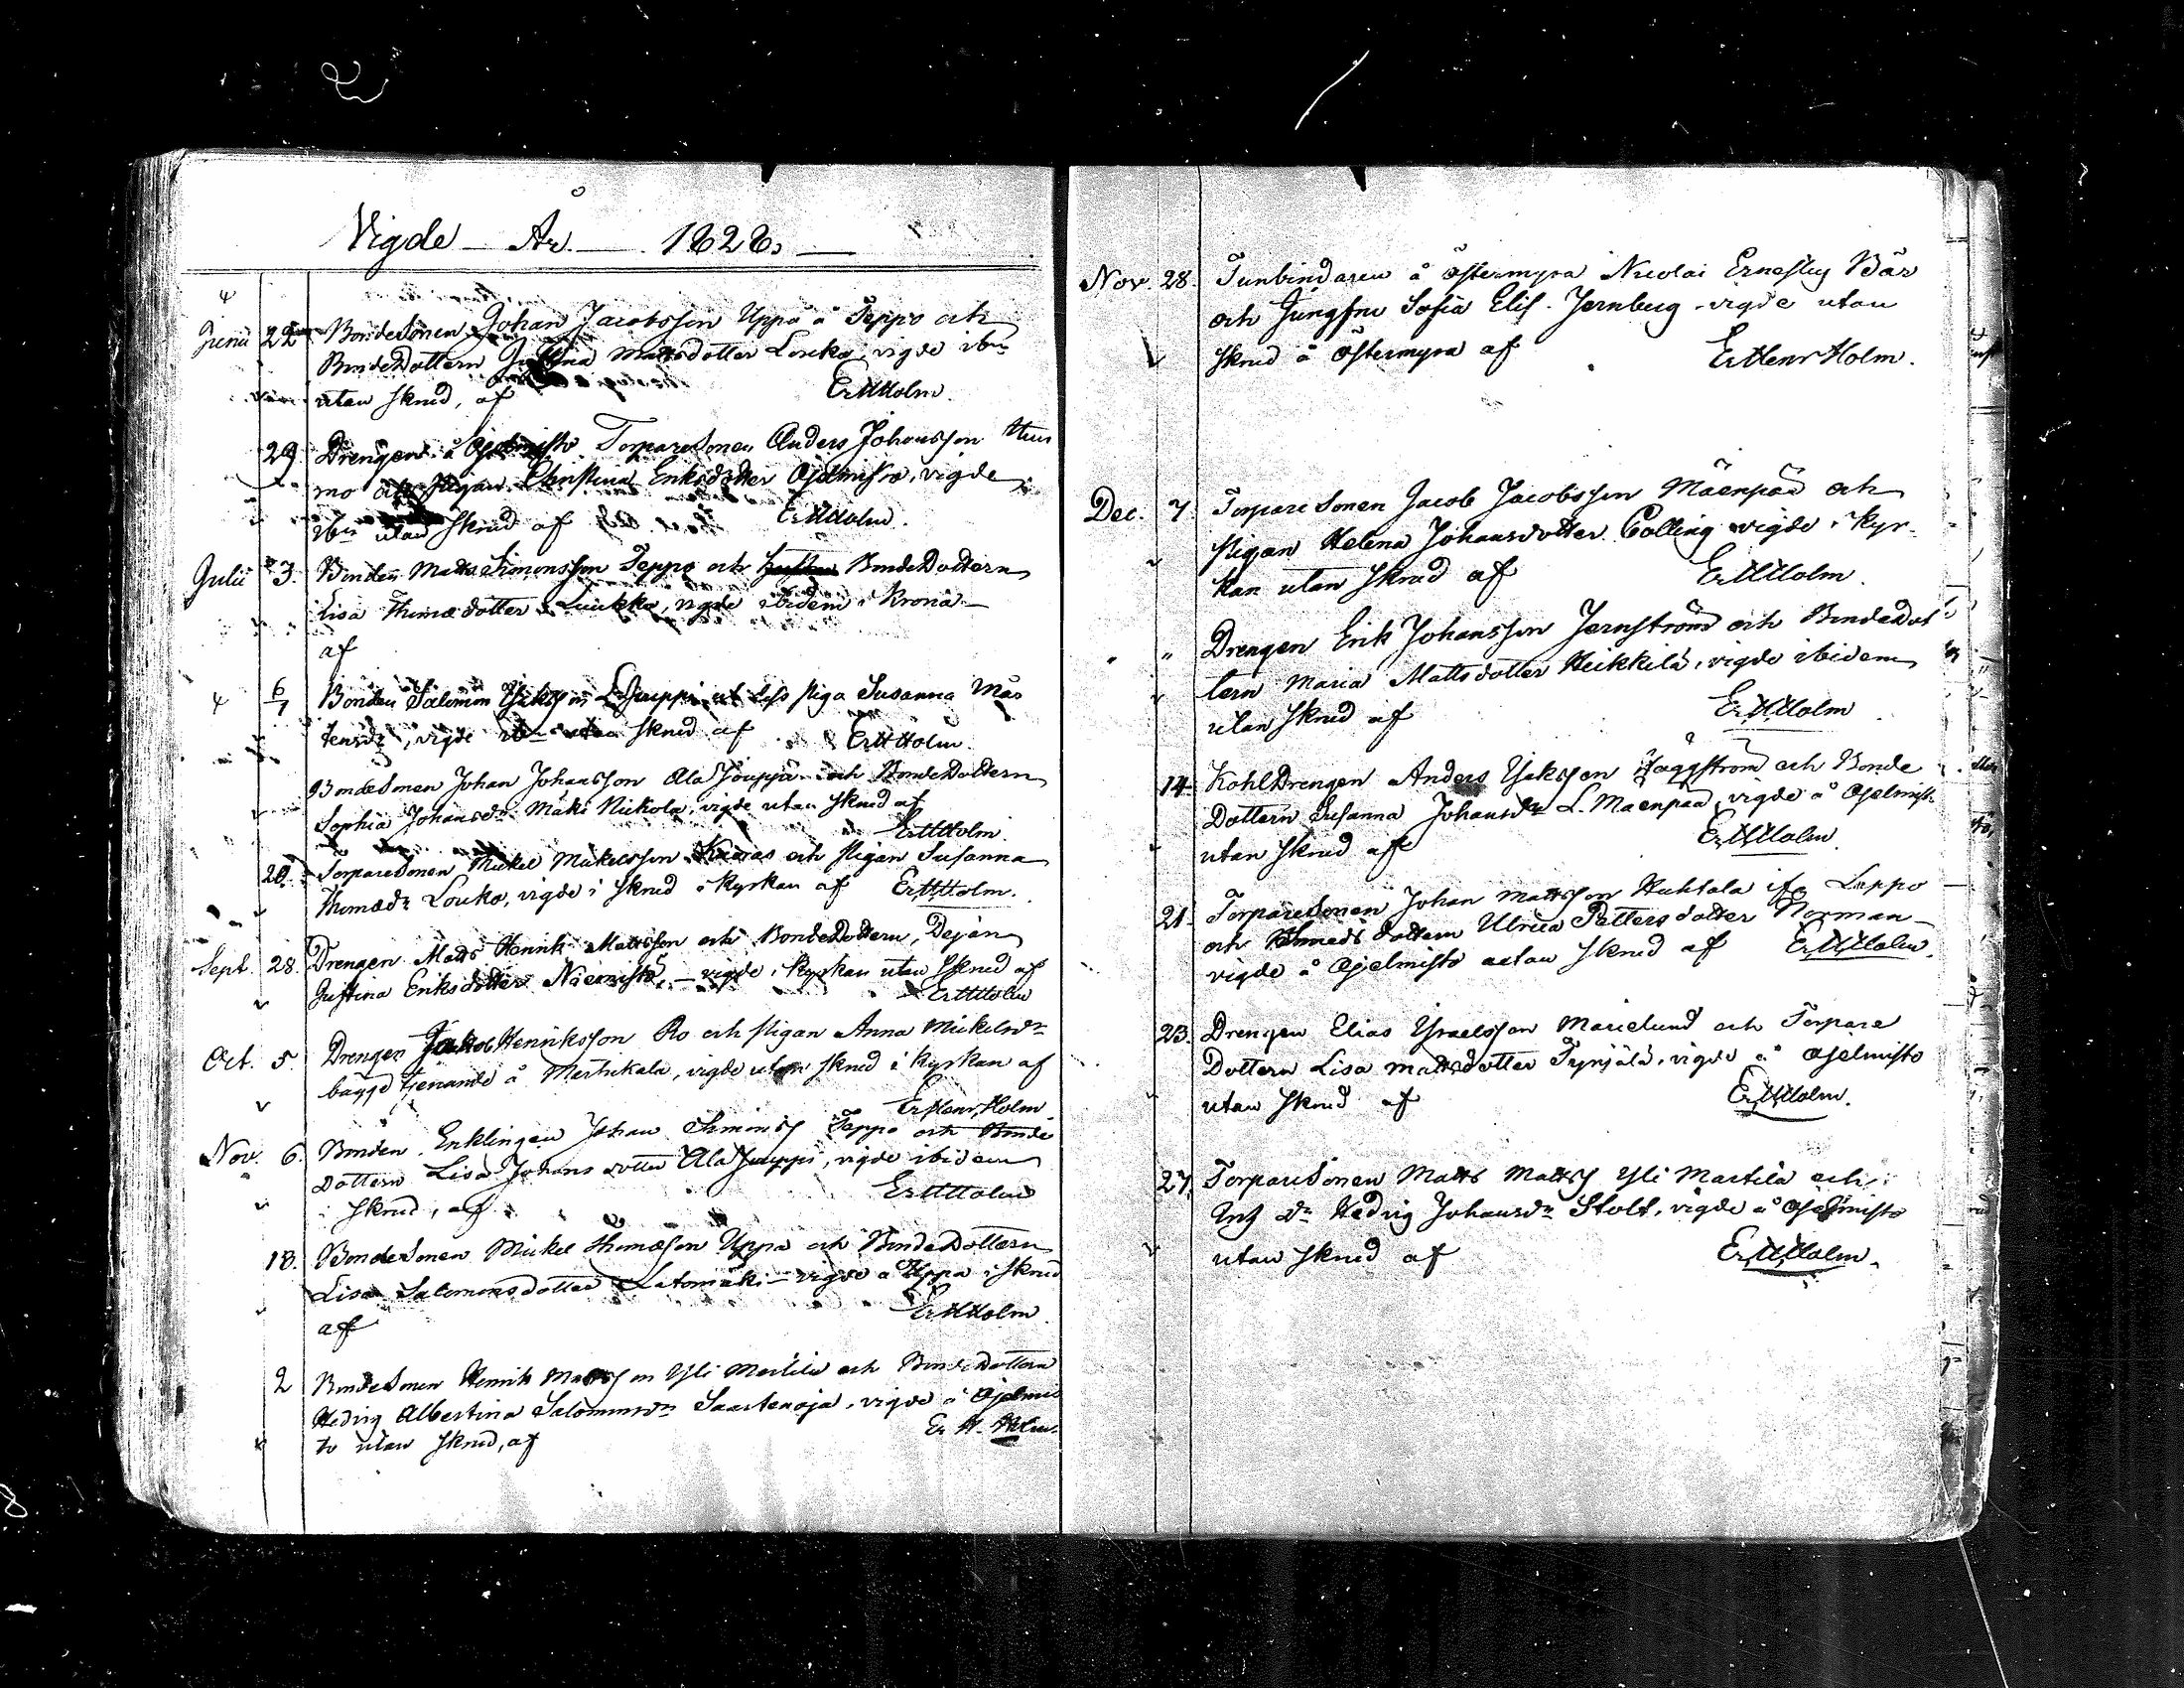 Vigde År 1828.
Junii 22 BondeSonen Johan Jacobsson Uppa å Teppo och
BondeDottern Mattsdotter Louko, vigde ibm
utan skrud, af ErHHolm.
29 Drengen å TorpareSonen Anders Johansson
mo och Pigan Christina Eriksdotter Öjelmisto, vigde
ibm utan skrud af ErHHolm.
Julii 3. Bonden Matts Simonsson Teppo och BondeDottern
Lisa Thomædotter Luukko, vigde ibidem i Krona
af
6 Bonden Salomon Isaksson Jouppi och dess Piga Susanna Mår
tensdr, vigde ibm utan skrud af ErHHolm.
BondeSonen Johan Johansson Ala Jouppi och BondeDottern
Sophia Johansdr Mäki Nickola, vigde utan skrud af
ErHHolm.
20. TorpareSonen Mickel Mickelsson och Pigan Susanna
Thomædr Louko, vigde i skrud i Kyrkan af ErHHolm.
Sept. 28. Drengen Matts Henrik Mattsson och BondeDottern, Dejan
Justina Eriksdotter Niemistö, vigde i Kyrkan utan skrud af
ErHHolm
Oct. 5. Drengen Jakob Henriksson Ro och Pigan Anna Mickelsdr
bägge tjenande å Mertikala, vigde utan skrud i Kyrkan af
ErHenrHolm.
Nov. 6. Bonden Enklingen Johan Simonss Teppo och Bonde
Dottern Lisa Johansdotter Ala Jouppi, vigde ibidem
i skrud, af ErHHolm
18. BondeSonen Mickel Thomæson Uppa och BondeDottern
Lisa Salomonsdotter Latomäki vigde å Uppa i skrud
af ErHHolm.
2 BondeSonen Henrik Mattsson Yli Martila och BondeDottern
Hedvig Albertina Salomonsdr Saartenoja, vigde å Öjelmis
to utan skrud, af Er H. Holm.
Nov. 28. Tunbindaren å Östermyra Nicolai Ernestus Bär
och Jungfru Sofia Elis. Jernberg vigde utan
skrud å Östermyra af ErHenrHolm.
Dec. 7 TorpareSonen Jacob Jacobsson Mäenpää och
Pigan Helena Johansdotter Colling vigde i Kyr-
kan utan skrud af ErHHolm.
" " Drengen Erik Johansson Jernström och BondeDot
tern Maria Mattsdotter Heikkilä, vigde ibidem
utan skrud af ErHHolm
14 KohlDrengen Anders Isaksson Häggström och Bonde
Dottern Susanna Johansdr L. Mäenpää, vigde å Öjelmist.
utan skrud af ErHHolm.
21. TorpareSonen Johan Mattsson Huhtala ifr Lappo
och Dottern Ulrica Pettersdotter Norman
vigde å Öjelmisto utan skrud af ErHHolm.
23. Drengen Elias Israelsson Marielund och Torpare
Dottern Lisa Mattsdotter Tynjälä, vigde å Öjelmisto
utan skrud af ErHHolm.
27. TorpareSonen Matts Mattss Yli Martila och
Dr Hedvig Johansdr Stolt, vigde å Öjelmisto
utan skrud af ErHHolm.